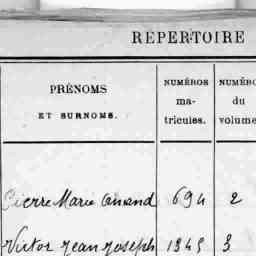 RÉPERTOIRE
PRÉNOMS
ET SURNOMS.
NUMÉROS
ma-
tricules.
NUMÉRO
du
volume
Pierre Marie 694 2
Victor Jean Joseph 1345 3